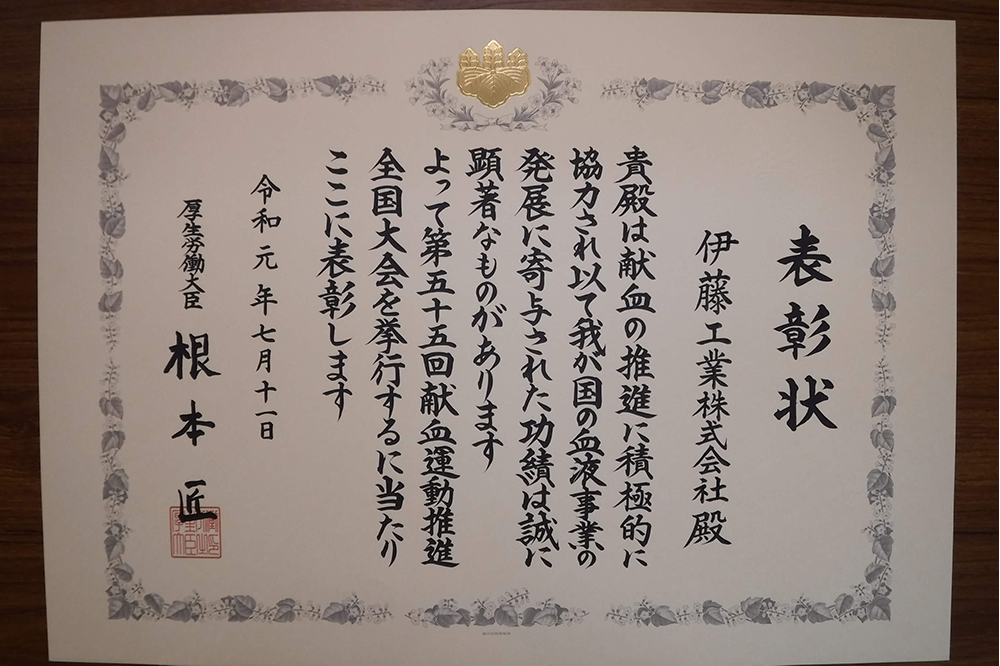 表彰状
伊藤工業株式会社殿
貴殿は献血の推進に積極的に
協力され以て我が国の血液事業の
発展に寄与された功績は誠に
顕著なものがあります
よって第五十五回献血運動推進
全国大会を挙行するに当たり
ここに表彰します
令和元年七月十一日
厚生労働大臣
根本匠